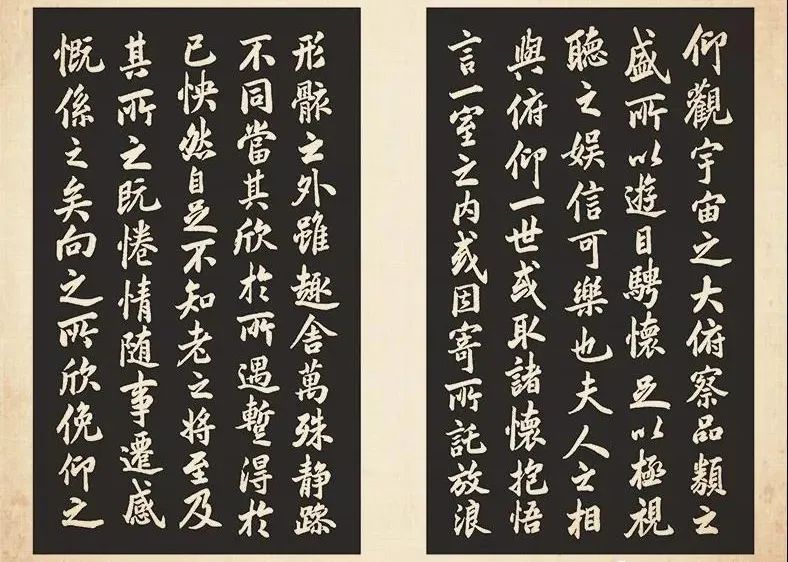 仰觀宇宙之大俯察品類之
盛所以遊目騁懷足以極視
聽之娱信可樂也夫人之相
與俯仰一世或取諸懷抱悟
言一室之内或因寄所託放浪
形骸之外雖趣舎萬殊静躁
不同當其欣於所遇蹔得於
己怏然自足不知老之將至及
其所之既惓情随事遷感
慨係之矣向之所欣俛仰之